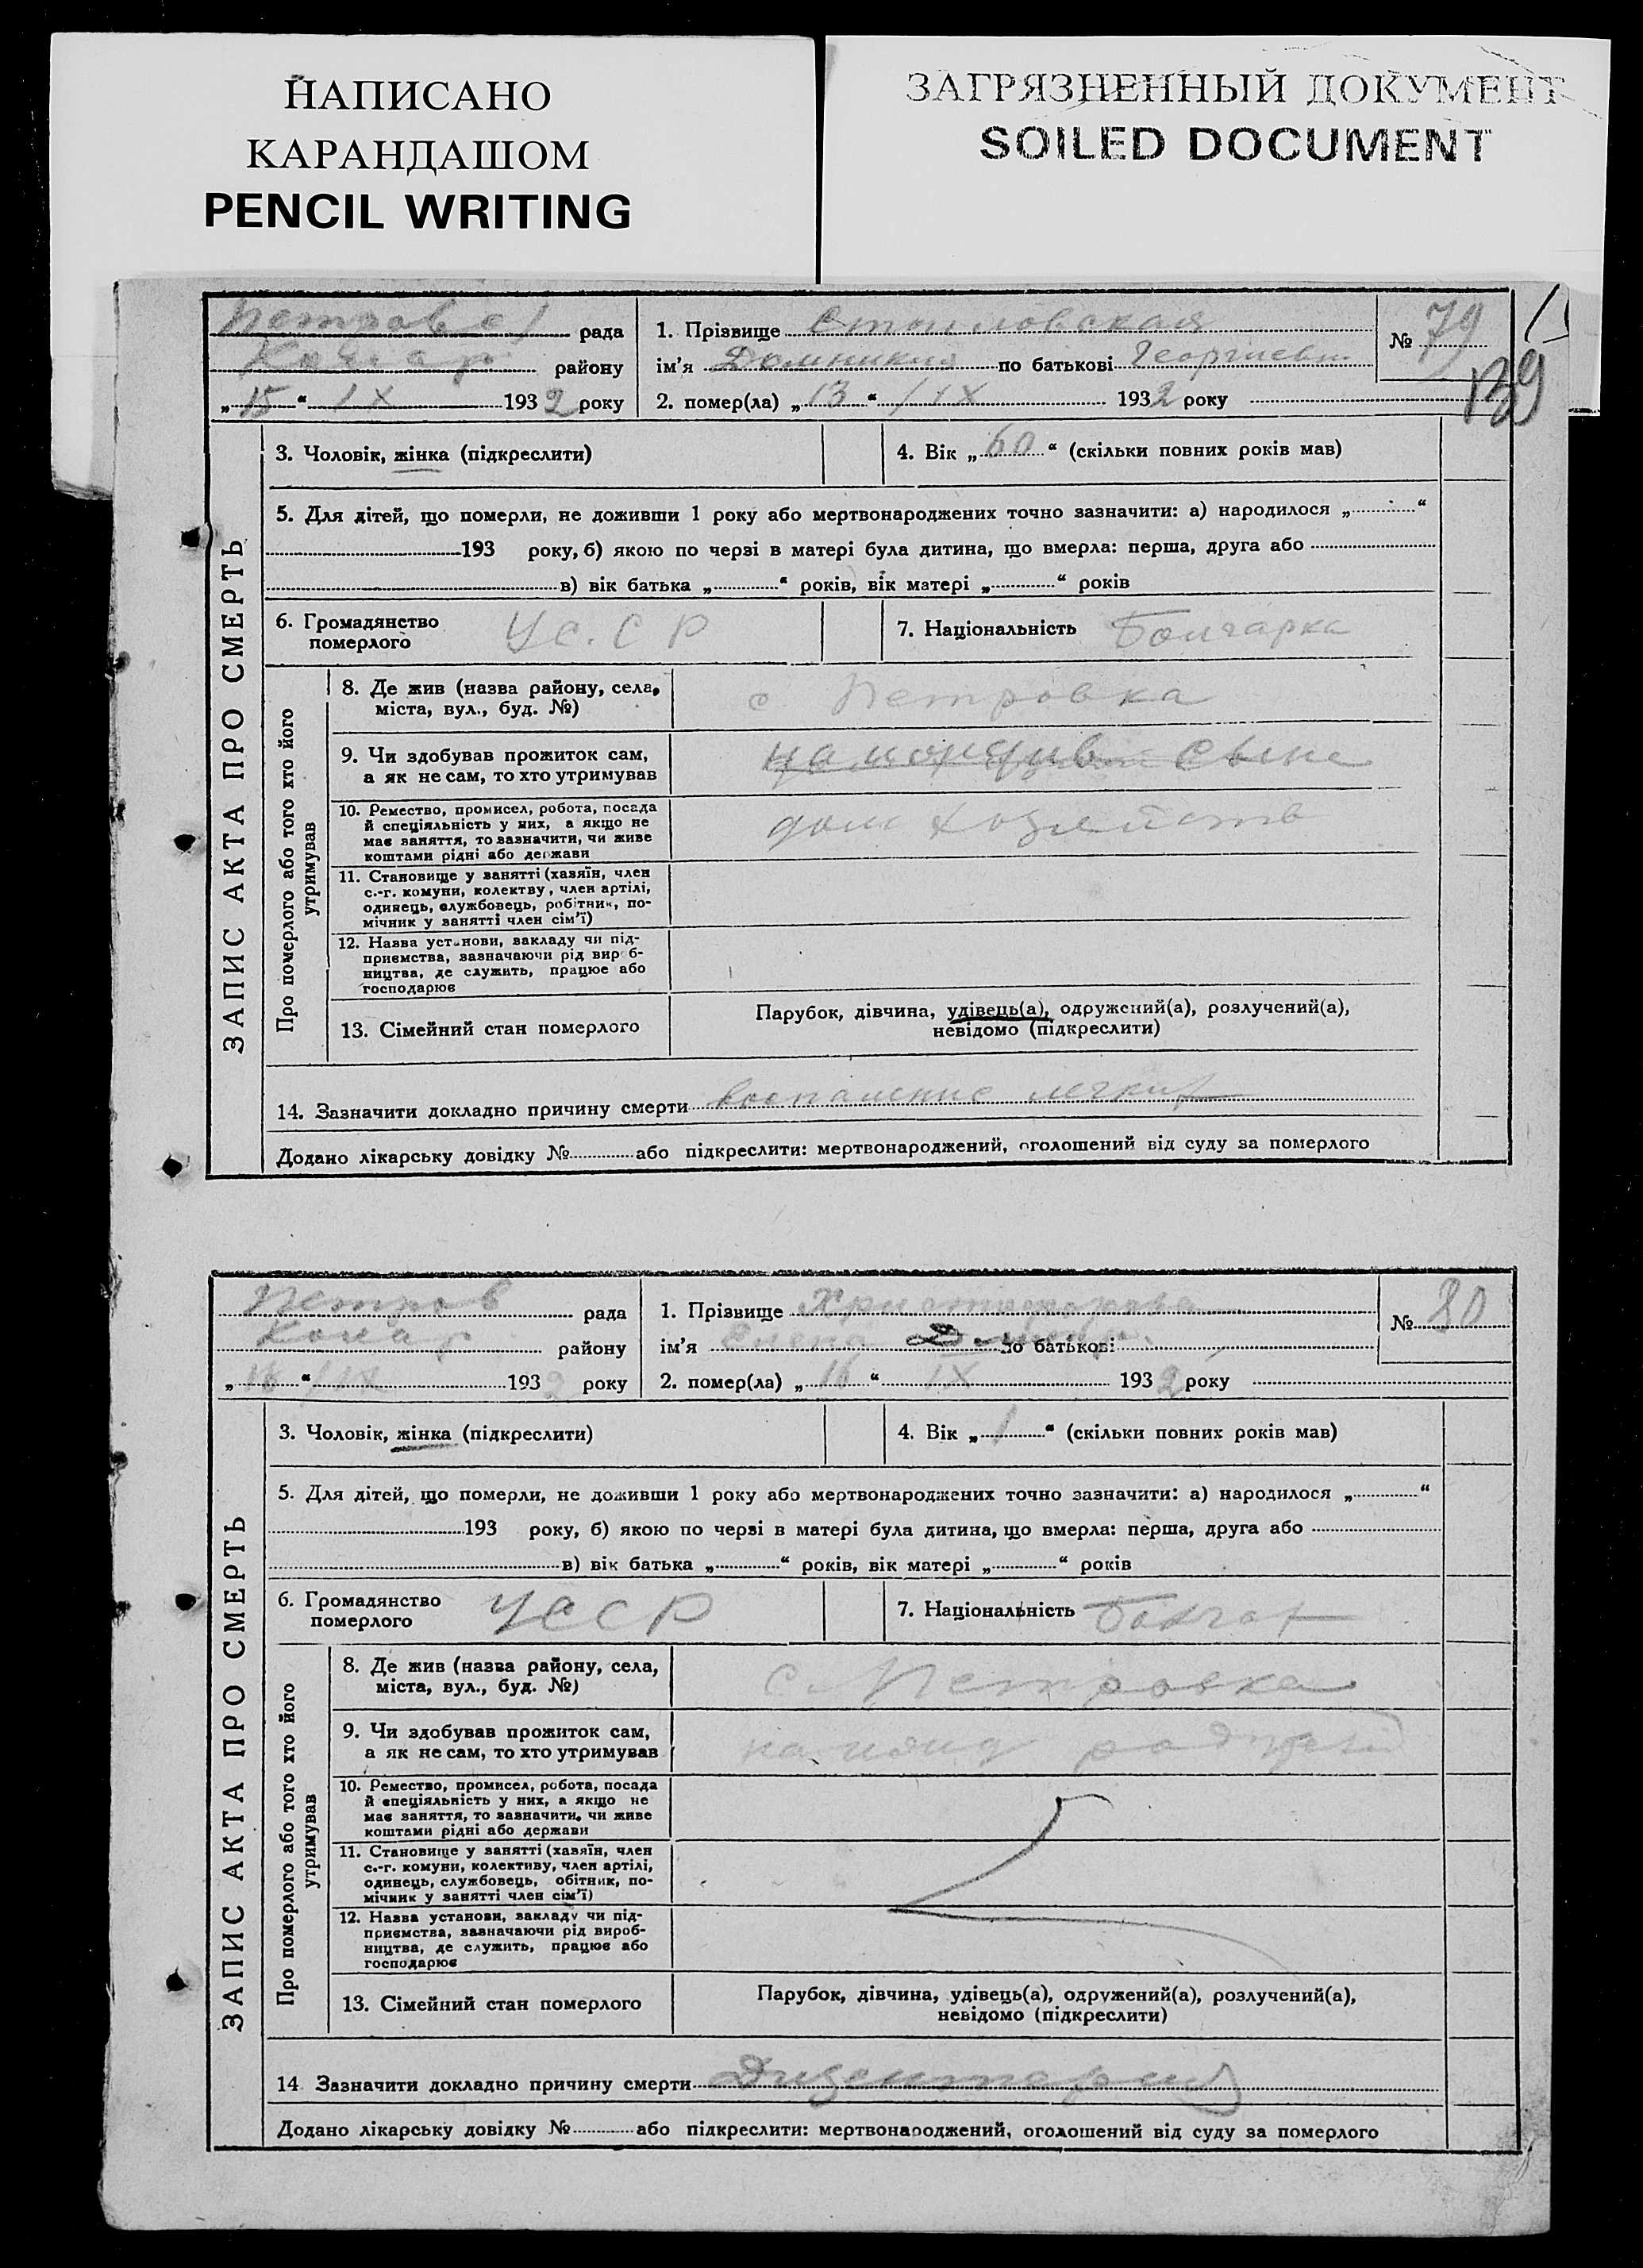 НАПИСАНО
КАРАНДАШОМ
PENCIL WRITING
ЗАГРЯЗНЕННЫЙ ДОКУМЕНТ
SOILED DOCUMENT
рада
району
„15“ IX 1932 року
1. Прізвище
№ 79
139
ім'я Домникия по батькові Георгиевн
2. помер(ла) „13“ IX 1932 року
ЗАПИС АКТА ПРО СМЕРТЬ
3. Чоловік, жінка (підкреслити)
4. Вік „60“ (скільки повних років мав)
5. Для дітей, що померли, не доживши 1 року або мертвонароджених точно зазначити: а) народилося „ “
193 року, б) якою по черзі в матері була дитина, що вмерла: перша, друга або
в) вік батька „ “ років, вік матері „ “ років
6. Громадянство
померлого
УС.СР
7. Національність Болгарка
Про померлого або того хто його
утримував
8. Де жив (назва району, села,
міста, вул., буд. №)
с Петровка
9. Чи здобував прожиток сам,
а як не сам, то хто утримував
сына
10. Ремество, промисел, робота, посада
й спеціяльність у них, а якщо не
має заняття, то зазначити, чи живе
коштами рідні або держави
дом хозяйств
11. Становище у занятті (хазяїн, член
с.-г. комуни, колектву, член артілі,
одинець, службовець, робітник, по-
мічник у занятті член сім'ї)
12. Назва установи, закладу чи під-
приємства, зазначаючи рід вироб-
ництва, де служить, працює або
господарює
13. Сімейний стан померлого
Парубок, дівчина, удівець(а), одружений(а), розлучений(а),
невідомо (підкреслити)
14. Зазначити докладно причину смерти воспаление легких
Додано лікарську довідку № або підкреслити: мертвонароджений, оголошений від суду за померлого
Петров рада
району
„16“ IX 1932 року
1. Прізвище Христофорова
№ 80
ім'я Елена по батькові
2. помер(ла) „16“ IX 1932 року
ЗАПИС АКТА ПРО СМЕРТЬ
3. Чоловік, жінка (підкреслити)
4. Вік „1“ (скільки повних років мав)
5. Для дітей, що померли, не доживши 1 року або мертвонароджених точно зазначити: а) народилося „ “
193 року, б) якою по черзі в матері була дитина, що вмерла: перша, друга або
в) вік батька „ “ років, вік матері „ “ років
6. Громадянство
померлого
УССР
7. Національність Болгар
Про померлого або того хто його
утримував
8. Де жив (назва району, села,
міста, вул., буд. №)
с. Петровка
9. Чи здобував прожиток сам,
а як не сам, то хто утримував
10. Ремество, промисел, робота, посада
й спеціяльність у них, а якщо не
має заняття, то зазначити, чи живе
коштами рідні або держави
11. Становище у занятті (хазяїн, член
с.-г. комуни, колективу, член артілі,
одинець, службовець, обітник, по-
мічник у занятті член сім'ї)
12. Назва установи, закладу чи під-
приємства, зазначаючи рід вироб-
ництва, де служить, працює або
господарює
13. Сімейний стан померлого
Парубок, дівчина, удівець(а), одружений(а), розлучений(а),
невідомо (підкреслити)
14 Зазначити докладно причину смерти Дизентерия
Додано лікарську довідку № або підкреслити: мертвонароджений, оголошений від суду за померлого